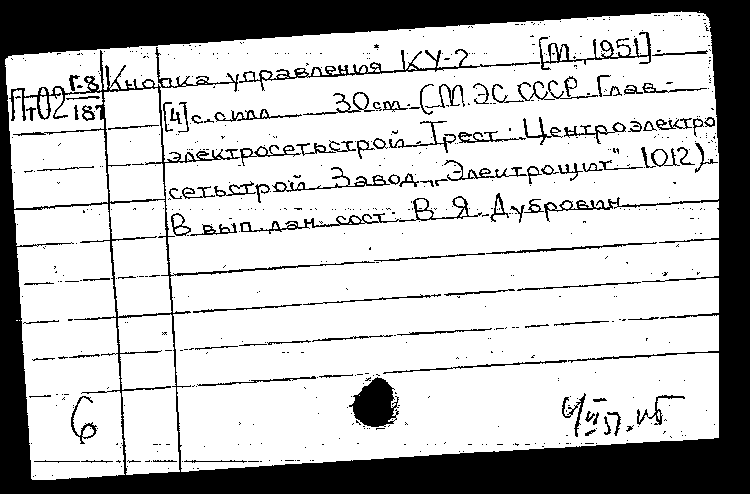 Пт02 Г-8/181 Кнопка управления КУ-2 [М., 1951].
[4] с. с илл. 30 cm. (МЭС СССР. Глав-
электросетьстрой. Трест: Центроэлектро
сетьстрой. Завод „Электрощит" 1012).
В вып. дан. сост: В. Я. Дубровин
6